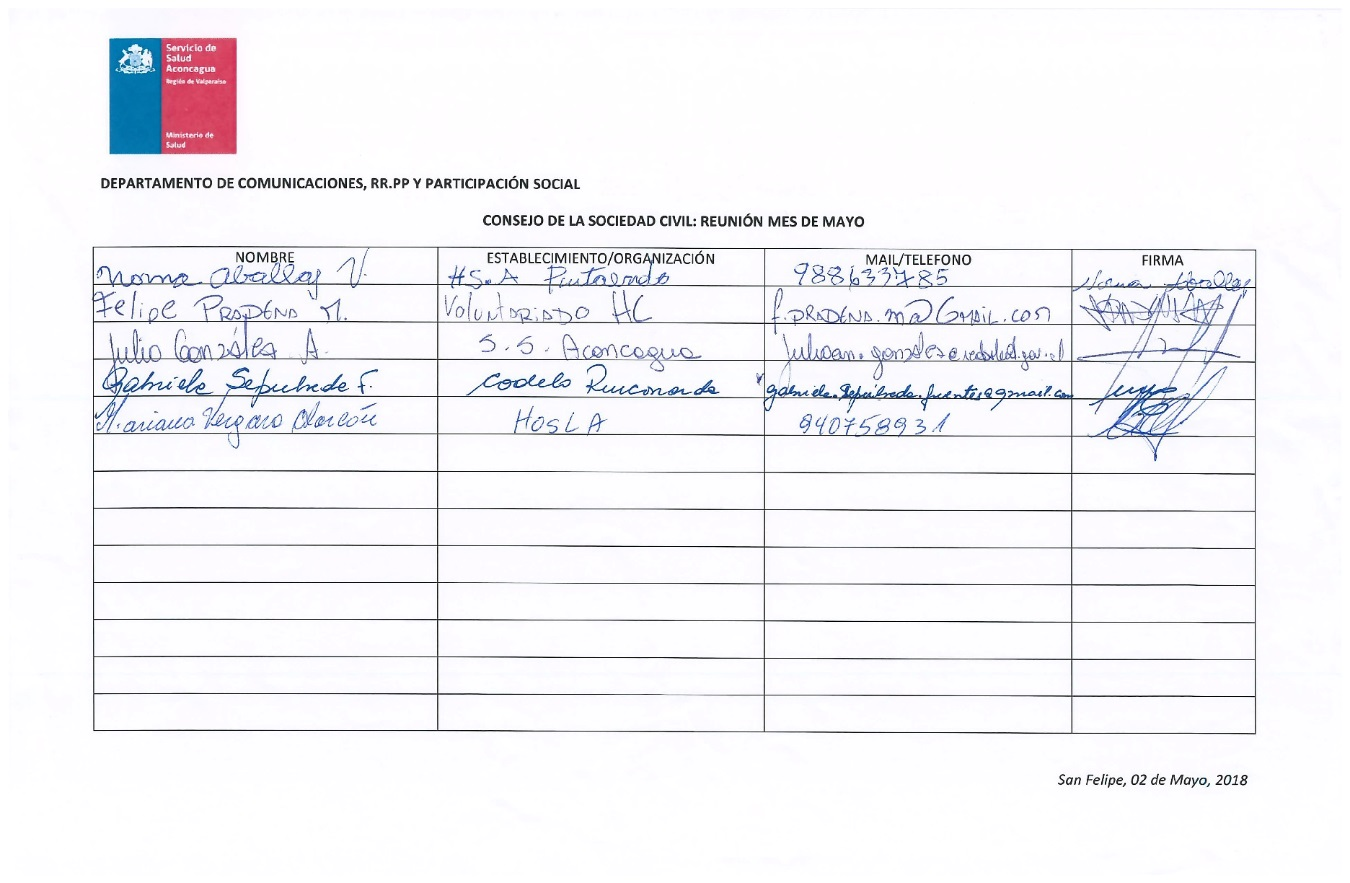 Servicio de
Salud
Aconcagua
Región de Valparaíso
Ministerio de
Salud
DEPARTAMENTO DE COMUNICACIONES, RR.PP Y PARTICIPACIÓN SOCIAL
CONSEJO DE LA SOCIEDAD CIVIL: REUNIÓN MES DE MAYO
NOMBRE ESTABLECIMIENTO/ORGANIZACIÓN MAIL/TELEFONO FIRMA
Norma Aballay V. HS.A Putaendo 988633785 Norma Aballay
Felipe PRADENA M. VOLUNTARIADO HC f.PRADENA.m@GMAIL.COM
Julio González A. S.S. Aconcagua
Gabriela Sepulveda F. Codelo Rinconada gabriela.sepulveda.fuentes@gmail.com
Mariana Vergara Alarcón HOSLA 940758931
San Felipe, 02 de Mayo, 2018